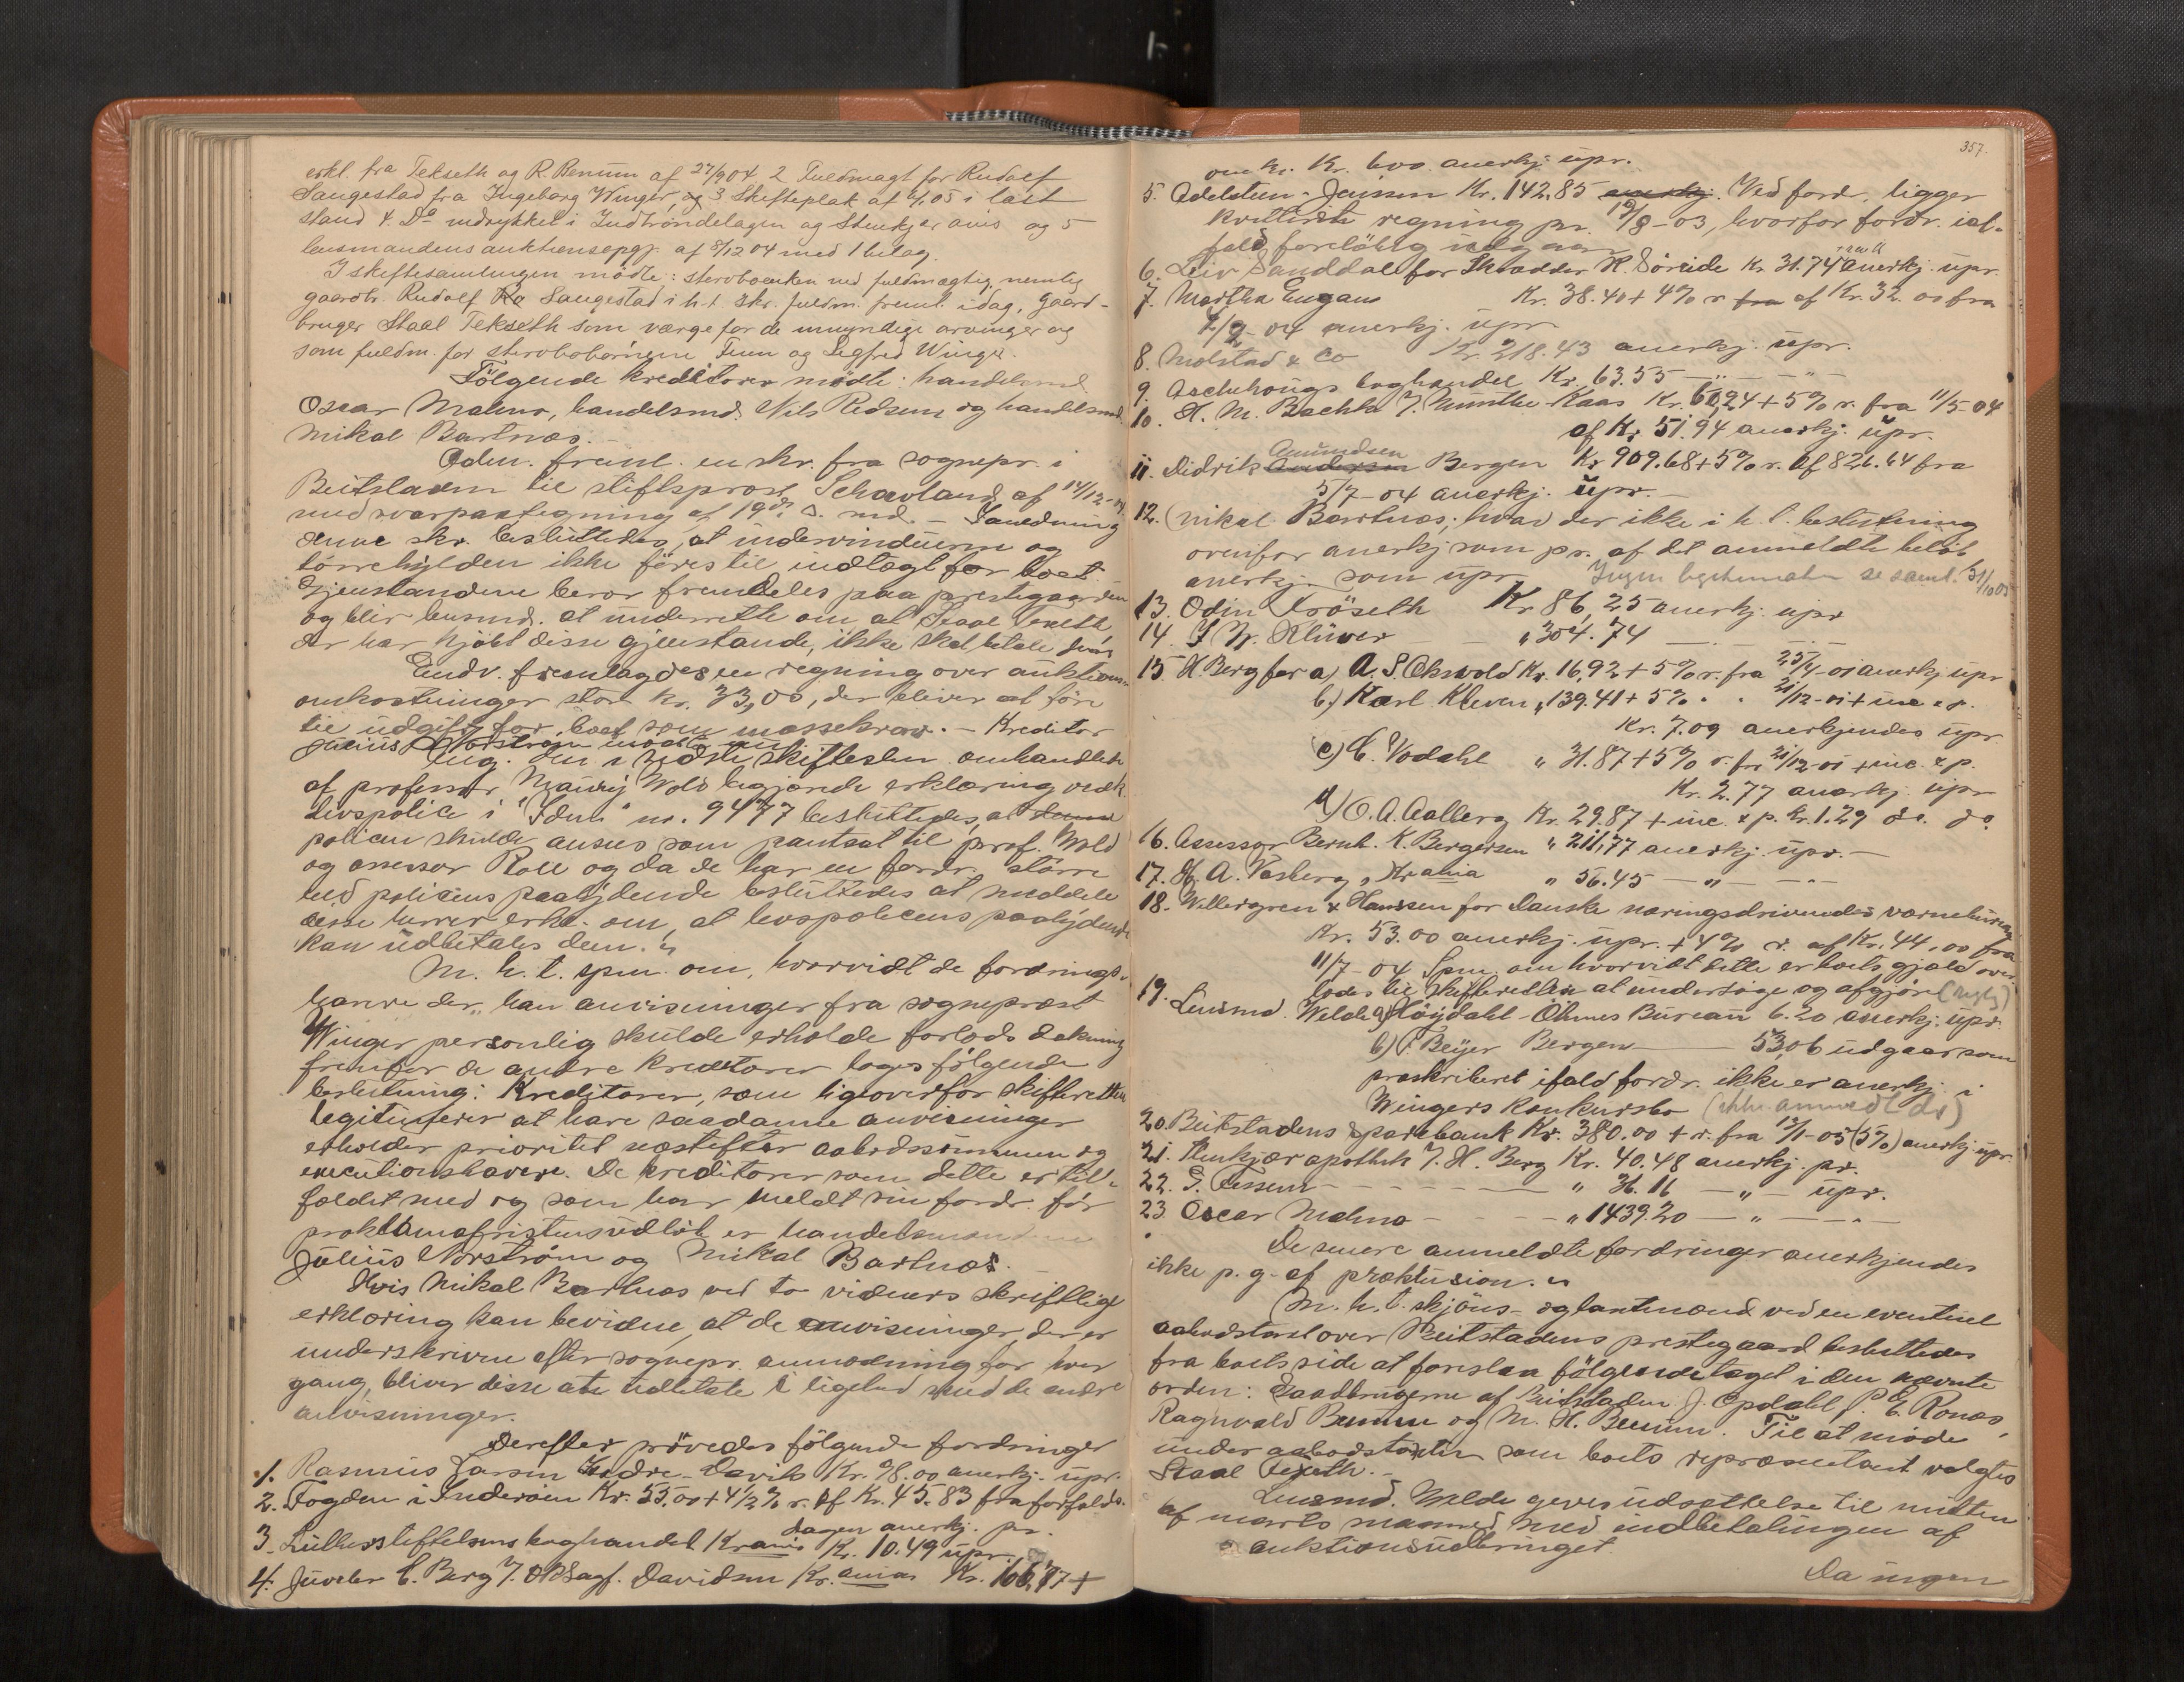 erkl. fra Tekseth og R. Benum af 27/9 04 2 Fuldmagt for Rudolf
Saugestad fra Ingeborg Winger, og 3 Skifteplak af 4/1 05 i læst
stand 4. Do indrykket i Indtrøndelagen og Stenkjær avis og 5
lensmandens auktionsopgj. af 8/12 04 med 1 bilag.
I skiftesamlingen mødte: sterboenken ved fuldmægtig, nemlig
gaardbr. Rudolf Saugestad i h. t. skr. fuldm. freml. idag, gaard-
bruger Staal Tekseth som værge for de umyndige arvinger og
som fuldm. for sterbobørnene Finn og Sigfred Winge.
Følgende kreditorer mødte: handelsmd.
Oscar Malmo, handelsmd. Nils Redsem og handelsmd.
Mikal Bartnæs.
Adm. freml. en skr. fra sognepr. i
Beitstaden til stiftsprost Schavland af 14/12-04
med svarpaategning af 19de s. md. – I anledning
denne skr. besluttedes, at undervinduerne og
tørrehylden ikke føres til indtægt for boet.
Gjenstandene beror fremdeles paa prestegaarden
og blir lensmd. at underrette om, at Staal Tekseth
der har kjøbt disse gjenstande, ikke skal betale dem
Endv. fremlagdes en regning over auktions-
omkostninger stor kr. 33,00, der bliver at føre
til udgift for boet som massekrav. – Kreditor
Julius Norstrøm mødte nu
Ang. den i sidste skiftesaml. omhandlede
af professor Maurij Wold begjærede erklæring vedk.
livspolice i "Idun" no. 9477 besluttedes, at denne
policen skulde ansees som pantsat til prof. Wold
og assessor Roll og da de har en fordr. større
end policens paalydende besluttedes at meddele
disse herrer erkl. om, at livspolicens paalydende
kan udbetales dem.
M. h. t. spm. om, hvorvidt de fordrings-
havere der har anvisninger fra sogneprest
Winger personlig skulde erholde forlods dækning
fremfor de andre kreditorer toges følgende
beslutning: Kreditorer, som ligeoverfor skifteretten
legitimerer at have saadanne anvisninger
erholder prioritet næstefter aabodssummen og
executionshavere. De kreditorer som dette er til-
fældet med og som har meldt sin fordr. før
proklamafristens udløb er handelsmændene
Julius Norstrøm og Mikal Bartnæs.
Hvis Mikal Bartnæs ved to vidners skriftlige
erklæring kan bevidne, at de anvisninger, der er
underskrevne efter sognepr. anmodning for hver
gang, bliver disse at udbetale i lighed med de andre
anvisninger.
Derefter prøvedes følgende fordringer
1. Rasmus Larsen Indre-Davik Kr. 98.00 anerkj. upr.
2. Fogden i Inderøen Kr. 55.00 + 4 1/2 % r. af Kr. 45.83 fra forfalds-
dagen anerkj. pr.
3. Lutherstiftelsens boghandel Krania Kr. 10.49 upr.
4. Juveler C. Berg f. Sagf. Davidsen Kr.ania Kr. 166,87 +
357.
Kr. 600 anerkj. upr.
5. Adelsteen-Jensen Kr. 142.85 anerkj. Ved fordr. ligger
kvitteret regning pr. 19/8-03, hvorfor fordr. ial-
fald foreløbig udgaar
6. Leiv Sanddal for Skrædder K. Søreide Kr. 31.74 anerkj. upr.
7. Martha Engan Kr. 38.40 + 4% r. fra af Kr. 32.00 fra
1/2-04 anerkj. upr.
8. Molstad & Co Kr. 218.43 anerkj. upr.
9. Aschehougs boghandel Kr. 63.55 — " — " —
10. H. M. Bachke f. Munthe-Kaas Kr. 60,24 + 5% r. fra 11/5-04
af Kr. 51.94 anerkj. upr.
Amundsen
11. Didrik Andersen Bergen Kr 909.68 + 5% r. af 826.64 fra
5/7-04 anerkj. upr. —
12. Mikal Bartnæs; hvad der ikke i h. t. beslutning
ovenfor anerkj. som pr. af det anmeldte beløb
anerkj. som upr. Ingen legitimation se saml. 31/10 05
13. Odin Frøseth Kr 86,25 anerkj. upr
14. I. N. Klüwer " 304.74 — . — . —
15. H. Berg for a) A. S. Ekrwold Kr. 16,92 + 5% r. fra 25/4-01 anerkj. upr
b) Karl Kleven " 139.41 + 5% " " 21/12-01 + inc & p.
Kr. 7.09 anerkjendes upr
c) C. Vodahl " 31.87 + 5% r. fra 21/12-01 + inc. & p.
Kr. 2.77 anerkj. upr
d) O. A. Aalberg Kr. 29.87 + inc. & p. Kr. 1.29 do. do.
16. Assessor Bernh. K. Bergersen " 211,77 anerkj. upr. —
17. H. A. Vesberg, Krania " 56.45 — " — " —
18. Wellergren & Hanssen for Danske næringsdrivendes værnebureau
Kr. 53.00 anerkj. upr. + 4% r. af Kr. 44,00 fra
11/7-04 Spm. om hvorvidt dette er boets gjæld over-
lodes til skifteretten at undersøge og afgjøre
19. Lensmd. Welde a) Høydahl-Ohmes Bureau 6.20 anerkj. upr.
b) F. Beyer Bergen — 53,06 udgaar som
præskriberet ifald fordr. ikke er anerkj. i
Wingers konkursbo (ikke anmeldt der)
20. Beitstadens sparebank Kr. 380.00 + r. fra 12/1-05 (5%) anerkj. upr.
21. Stenkjær apothek f. H. Berg Kr. 40.48 anerkj. pr.
22. G. Fossem — " 36.16 — " — upr.
23. Oscar Malmo — " 1439.20 — " — " —
De senere anmeldte fordringer anerkjendes
ikke p. g. af præklusion.
M. h. t. skjøns- og lagmænd ved en eventuel
aabodstaxt over Beitstadens prestegaard besluttedes
fra boets side at foreslaa følgende taget i den nævnte
orden: Gaardbrugerne af Beitstaden J. Opdahl, P. E. Ronæs,
Ragnvald Benum og M. H. Benum. Til at møde
under aabodstaxten som boets repræsentant valgtes
Staal Tekseth. –
Lensmd. Welde gaves udsættelse til midten
af marts maaned med indbetalingen af
auktionsudbringet.
Da ingen